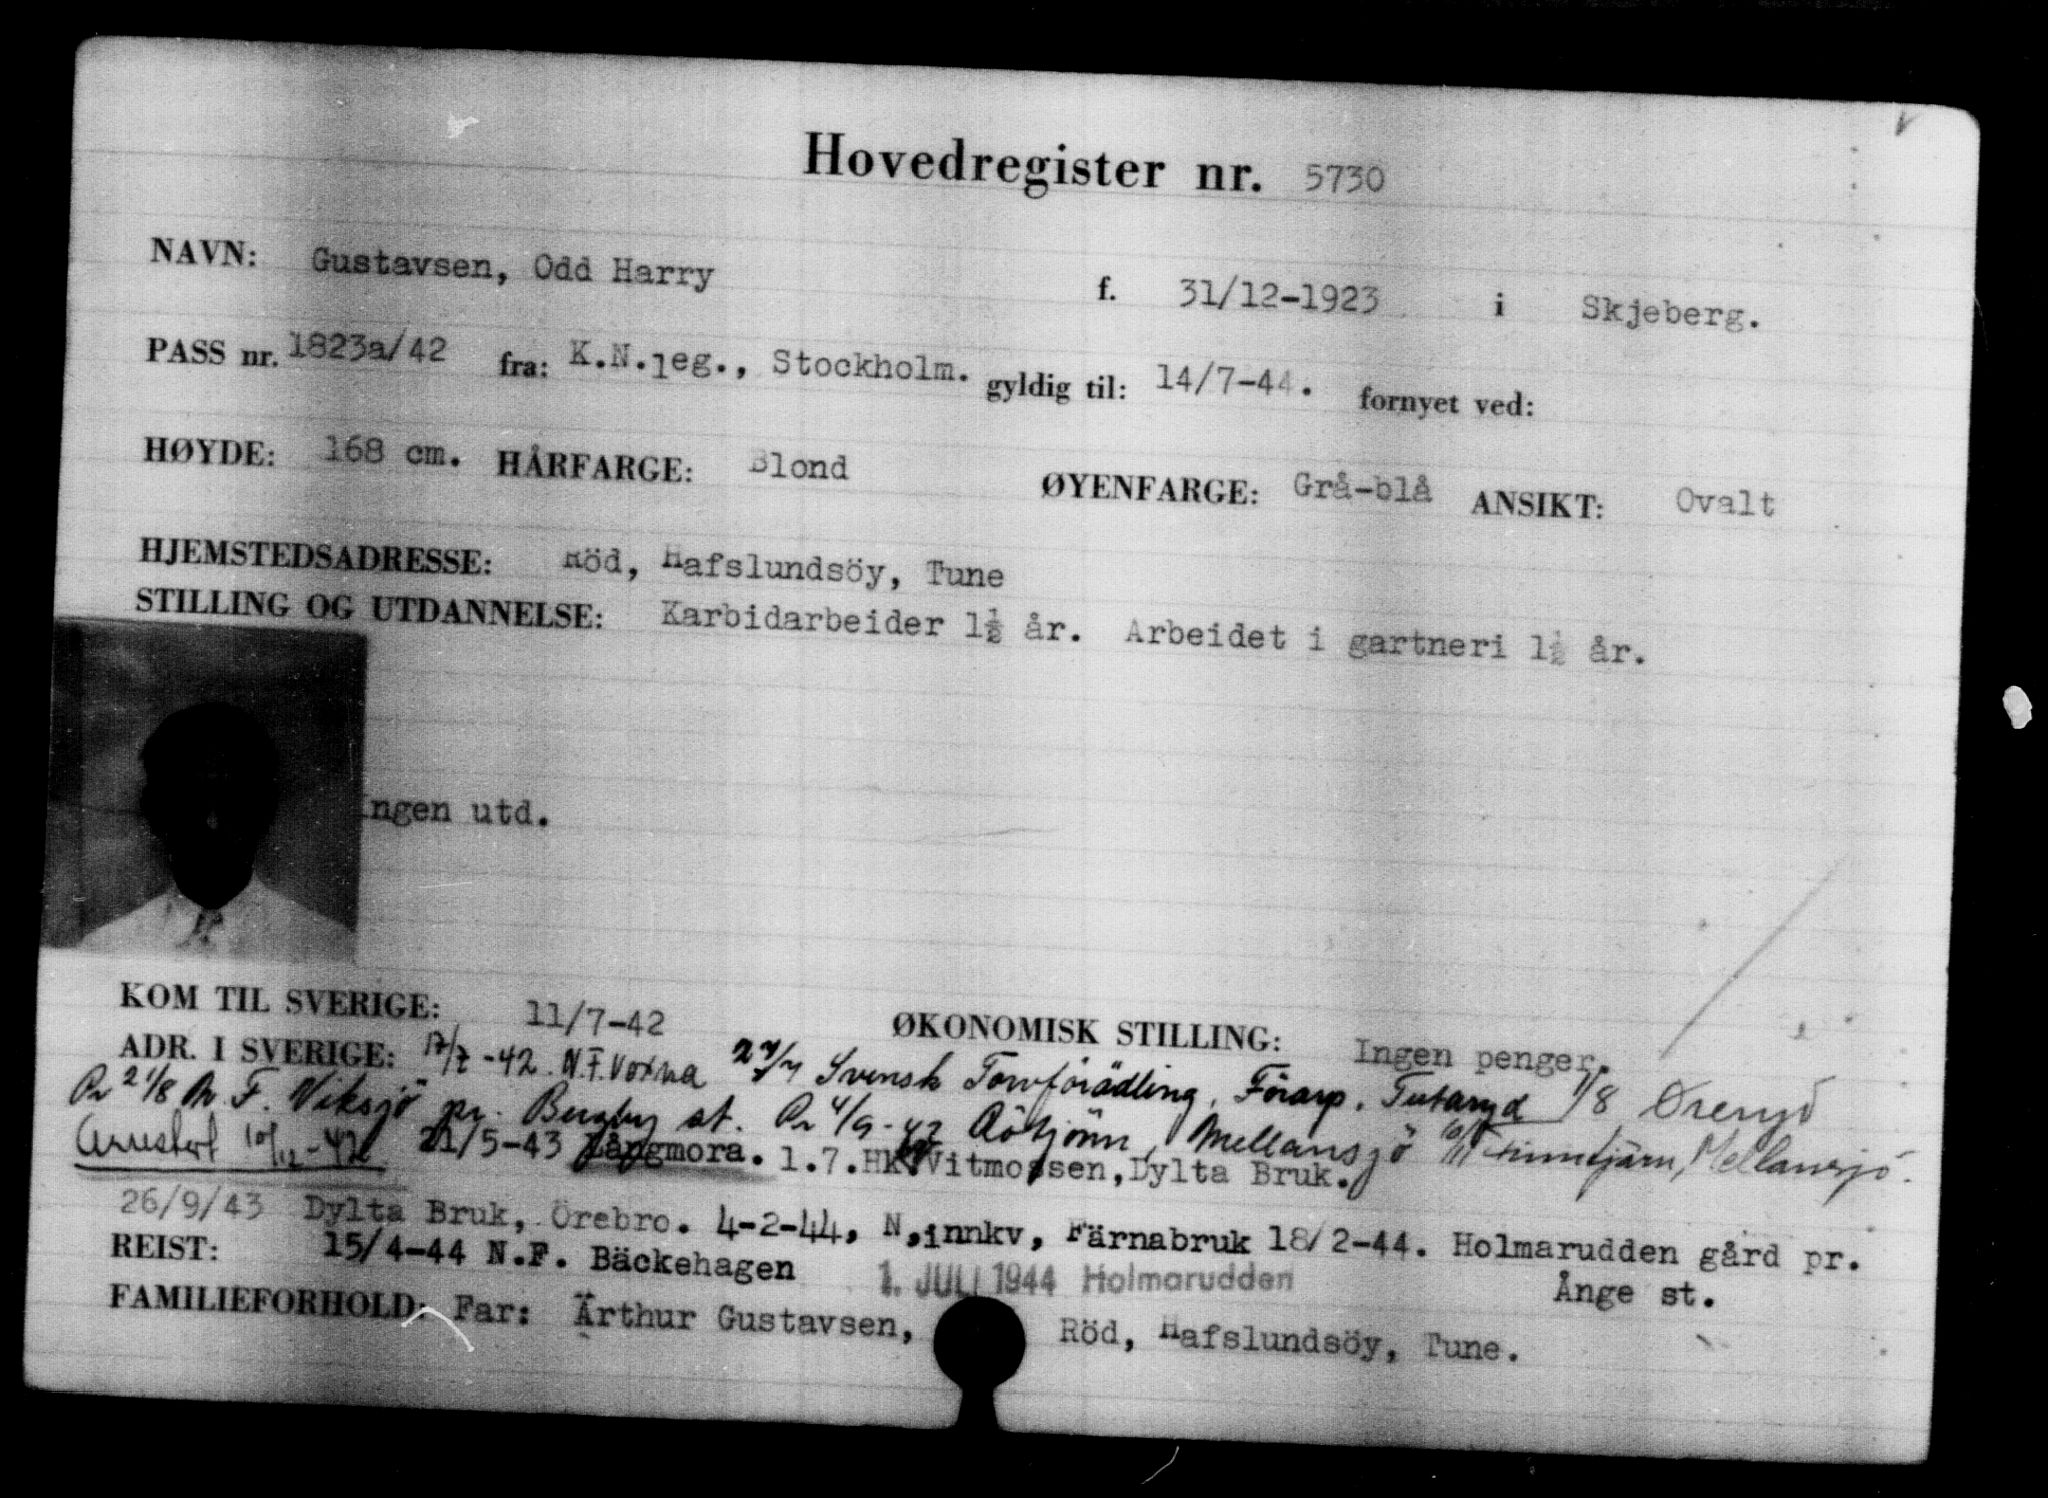 Hovedregister nr. 5730
NAVN: Gustavsen, Odd Harry f. 31/12-1923 i Skjeberg.
PASS nr. 1823a/42 fra: K.N.leg., Stockholm. gyldig til: 14/7-44. fornyet ved:
HØYDE: 168 cm. HÅRFARGE: Blond ØYENFARGE: Grå-blå ANSIKT: Ovalt
HJEMSTEDSADRESSE: Röd, Hafslundsöy, Tune
STILLING OG UTDANNELSE: Karbidarbeider 1½ år. Arbeidet i gartneri 1½ år.
Ingen utd.
KOM TIL SVERIGE: 11/7-42 ØKONOMISK STILLING: Ingen penger.
ADR. I SVERIGE: 17/7-42 N.F. Voxna Svensk Torvförädling, Förarp, Tutaryd 1/8 Örenyd
Pr 21/8 N.F. Viksjö pr. Bergby st. Pr 4/9-42 Rötjörn, Mellansjö Finntjärn, Mellansjö.
Arrestert 10/12-42 21/5-43 Långmora. 1.7. Vitmossen, Dylta Bruk.
26/9/43 Dylta Bruk, Örebro. 4-2-44, N.innkv, Färnabruk 18/2-44. Holmarudden gård pr.
REIST: 15/4-44 N.F. Bäckehagen 1. JULI 1944 Holmarudden Ånge st.
FAMILIEFORHOLD: Far: Arthur Gustavsen, Röd, Hafslundsöy, Tune.